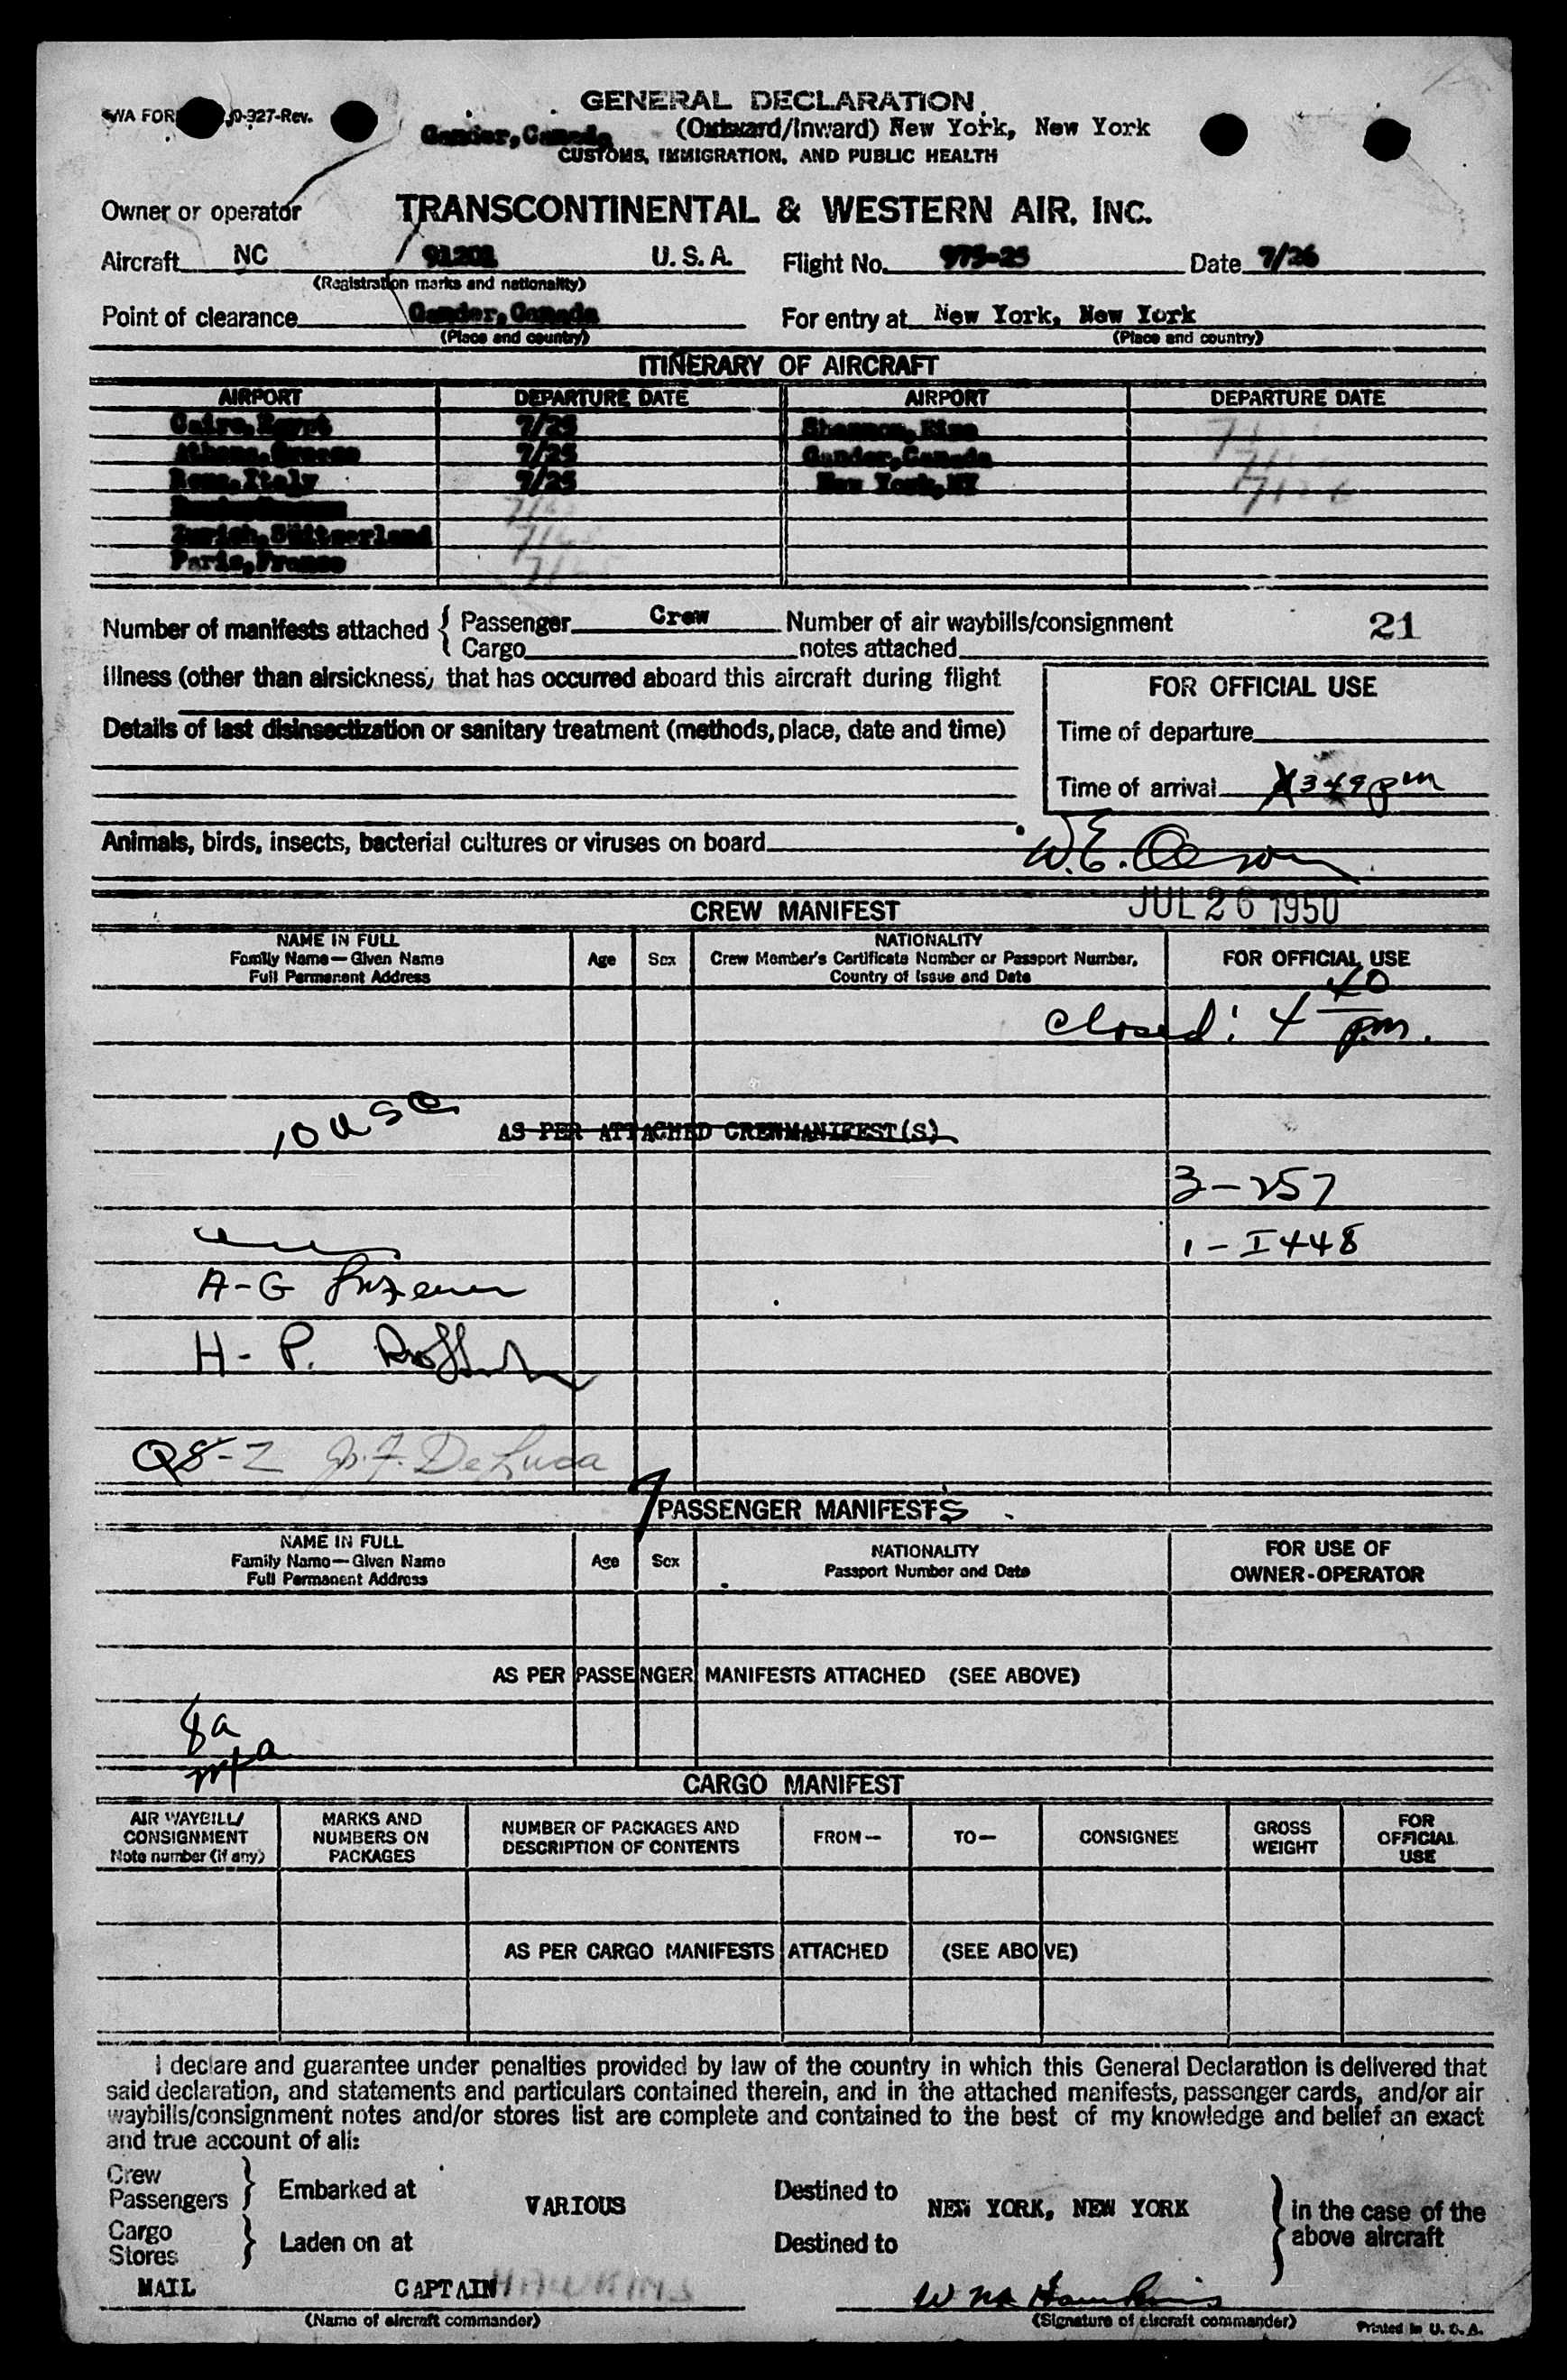 GENERAL DECLARATION
TWA FORM 0-327-Rev.
Gander, Canada (Outward/Inward) New York, New York
CUSTOMS, IMMIGRATION, AND PUBLIC HEALTH
Owner or operator TRANSCONTINENTAL & WESTERN AIR, INC.
Aircraft NC 91201 U. S. A. Flight No. 975-25 Date 7/26
(Registration marks and nationality)
Point of clearance Gander, Canada For entry at New York, New York
(Place and country) (Place and country)
ITINERARY OF AIRCRAFT
AIRPORT DEPARTURE DATE AIRPORT DEPARTURE DATE
Cairo, Egypt 7/25 Shannon, Eire 7/
Athens, Greece 7/25 Gander, Canada 7/
Rome, Italy 7/25 New York, NY 7/26
7/
Zurich, 7/
Paris, France 7/
Number of manifests attached { Passenger Crew Number of air waybills/consignment 21
Cargo notes attached
Illness (other than airsickness) that has occurred aboard this aircraft during flight
FOR OFFICIAL USE
Details of last disinsectization or sanitary treatment (methods, place, date and time)
Time of departure
Time of arrival 349 pm
Animals, birds, insects, bacterial cultures or viruses on board
W.E.
CREW MANIFEST JUL 26 1950
NAME IN FULL
Family Name—Given Name
Full Permanent Address
Age Sex
NATIONALITY
Crew Member's Certificate Number or Passport Number,
Country of Issue and Date
FOR OFFICIAL USE
closed: 4 40 pm.
10 USC
AS PER ATTACHED CREWMANIFEST(S)
3-257
1-I448
A-G
H-P.
Q8-2 DeLuca
7 PASSENGER MANIFESTS
NAME IN FULL
Family Name—Given Name
Full Permanent Address
Age Sex
NATIONALITY
Passport Number and Date
FOR USE OF
OWNER-OPERATOR
AS PER PASSENGER MANIFESTS ATTACHED (SEE ABOVE)
8a
CARGO MANIFEST
AIR WAYBILL/
CONSIGNMENT
Note number (if any)
MARKS AND
NUMBERS ON
PACKAGES
NUMBER OF PACKAGES AND
DESCRIPTION OF CONTENTS
FROM— TO— CONSIGNEE
GROSS
WEIGHT
FOR
OFFICIAL
USE
AS PER CARGO MANIFESTS ATTACHED (SEE ABOVE)
I declare and guarantee under penalties provided by law of the country in which this General Declaration is delivered that
said declaration, and statements and particulars contained therein, and in the attached manifests, passenger cards, and/or air
waybills/consignment notes and/or stores list are complete and contained to the best of my knowledge and belief an exact
and true account of all:
Crew
Passengers } Embarked at VARIOUS Destined to NEW YORK, NEW YORK } in the case of the
Cargo above aircraft
Stores } Laden on at Destined to
MAIL CAPTAIN HAWKINS W Hawkins
(Name of aircraft commander) (Signature of aircraft commander) Printed in U. S. A.